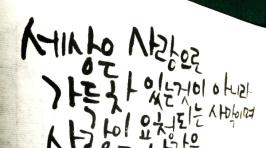 세상은 사랑으로
가득차 있는것이 아니라
사랑이 요청되는 사막이며
사랑은